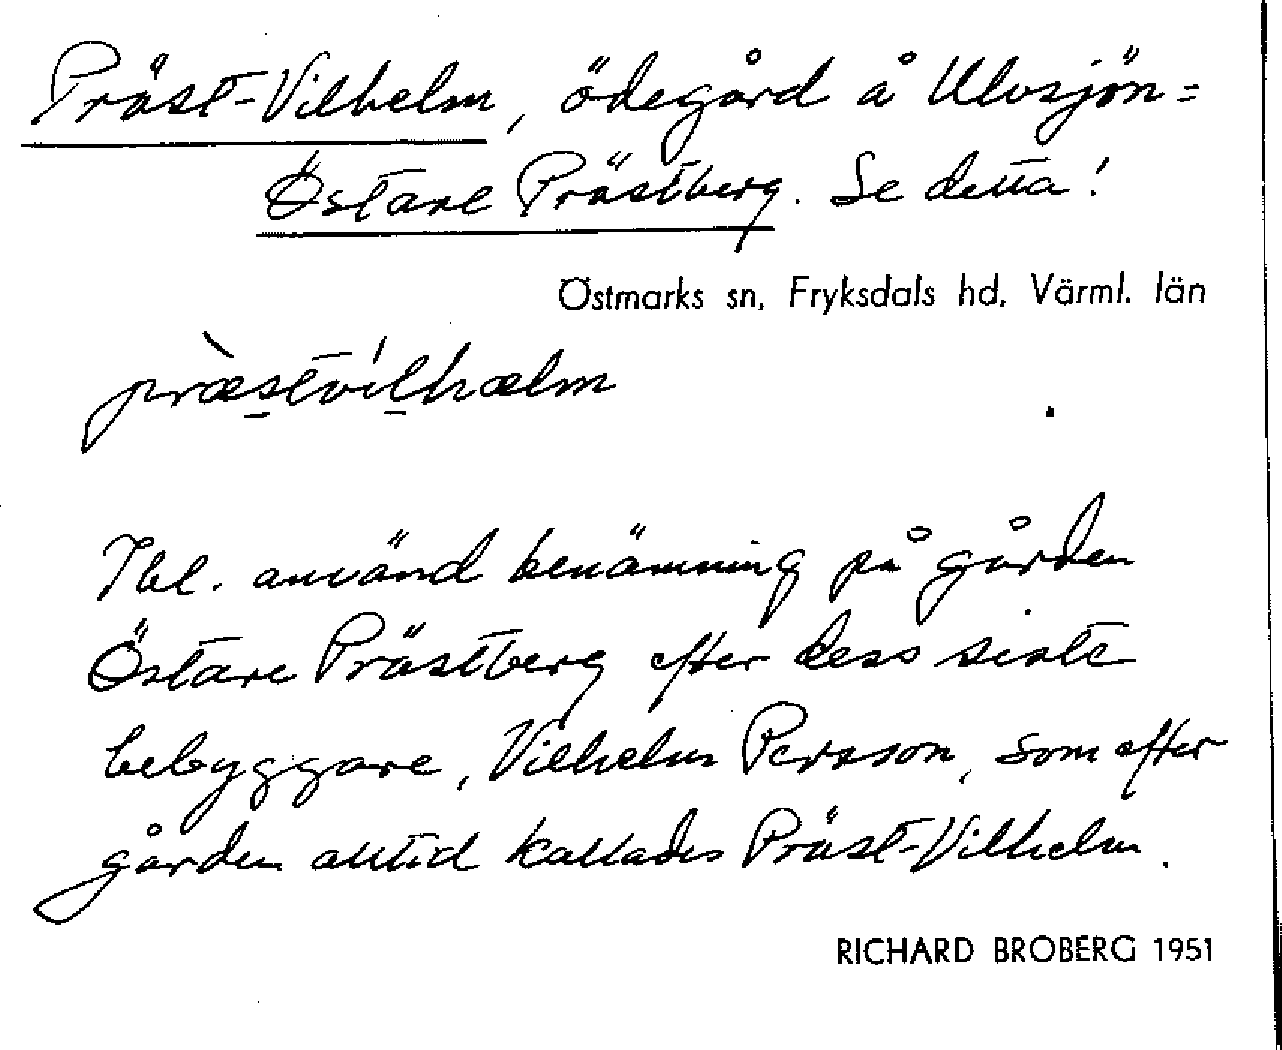 Präst-Vilhelm, ödegård å Ulvsjön =
Östare Prästberg. Se detta!
Östmarks sn, Fryksdals hd, Värml. län
præ̀stvílhælm
Ibl. använd benämning på gården
Östare Prästberg efter dess siste
bebyggare, Vilhelm Persson, som efter
gården alltid kallades Präst-Vilhelm.
RICHARD BROBERG 1951